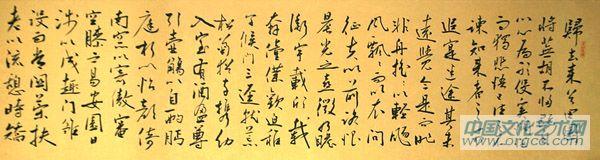 歸去來兮田園
將蕪胡不歸既自
以心為形役奚惆悵
而獨悲悟已往之不
諫知來者之可
追寔迷途其未
遠覺今是而昨
非舟搖搖以輕颺
風飄飄而吹衣問
征夫以前路恨
晨光之熹微乃瞻
衡宇載欣載
奔僮僕歡迎稚
子候門三逕就荒
松菊猶存攜幼
入室有酒盈尊
引壺觴以自酌眄
庭柯以怡顏倚
南窗以寄傲審
容膝之易安園日
涉以成趣門雖
設而常關策扶
老以流憩時矯
中国文化艺术网
www.orgcc.com